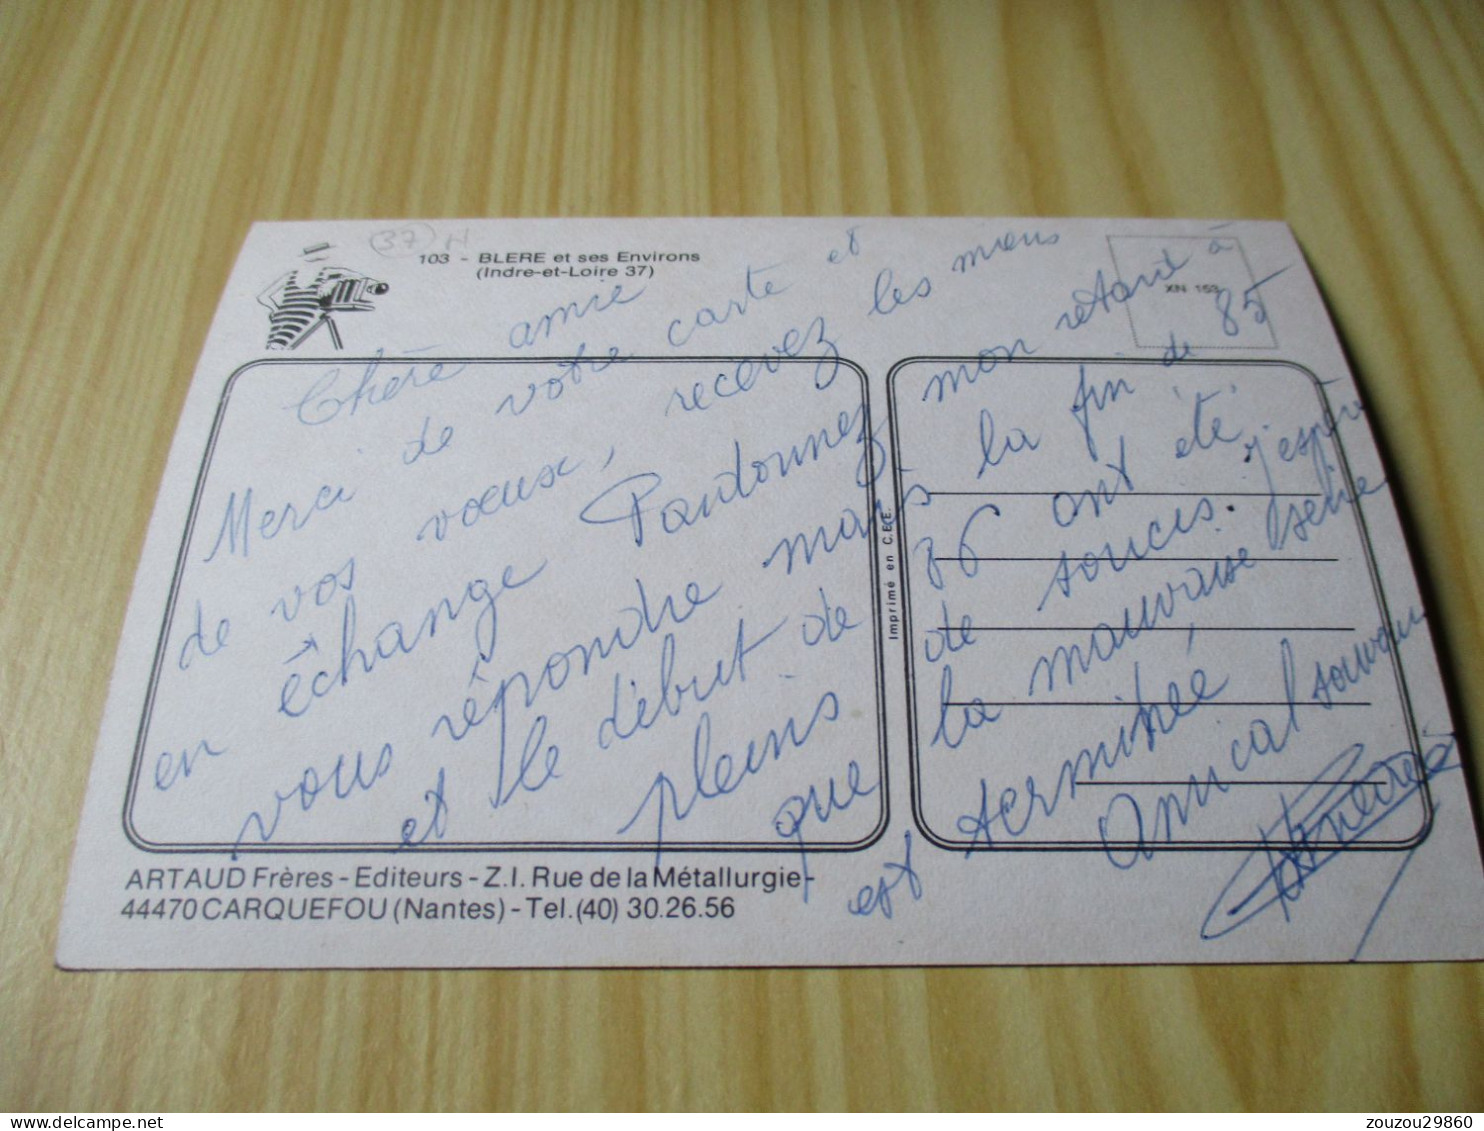 (37) H
103 - BLERE et ses Environs
(Indre-et-Loire 37)
XN 153
Chère amie
Merci de votre carte et
de vos voeux, recevez les miens
en échange Pardonnez mon retard à
vous répondre mais la fin de 85
et le début de 86 ont été
pleins de soucis. j'espère
que la mauvaise série
est terminée,
Amical souvenir
Imprimé en C.E.E.
ARTAUD Frères - Editeurs - Z.I. Rue de la Métallurgie -
44470 CARQUEFOU (Nantes) - Tel. (40) 30.26.56
zouzou29860